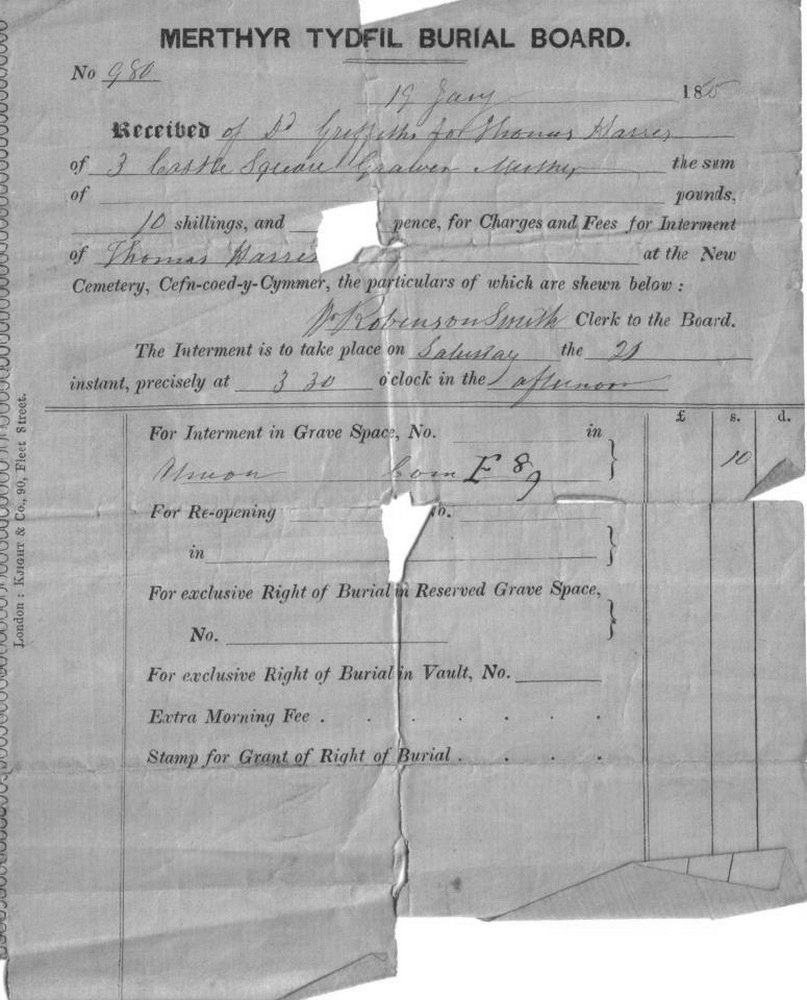 MERTHYR TYDFIL BURIAL BOARD.
No 980
19 Jany 18
Received of Dd Griffiths for Thomas Harris
of 3 Castle Square Merthyr the sum
of pounds,
10 shillings, and pence, for Charges and Fees for Interment
of Thomas Harris at the New
Cemetery, Cefn-coed-y-Cymmer, the particulars of which are shewn below :
Robinson Smith Clerk to the Board.
The Interment is to take place on Saturday the 21
instant, precisely at 3 30 o'clock in the afternoon
£ s. d.
For Interment in Grave Space, No. in
Com F 89 10
For Re-opening No.
in
For exclusive Right of Burial in Reserved Grave Space,
No.
For exclusive Right of Burial in Vault, No.
Extra Morning Fee . . . . . . .
Stamp for Grant of Right of Burial . . . .
London : KNIGHT & Co., 90, Fleet Street.